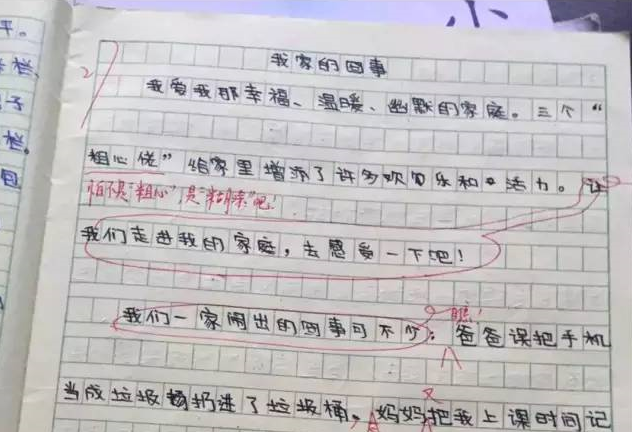 我家的囧事
我爱我那幸福、温暖、幽默的家庭。三个“
粗心佬”给家里增添了许多欢乐和活力。让
怕不是“粗心”，是“糊涂”吧！
我们走进我的家庭，去感受一下吧！
瞧！
我们一家闹出的囧事可不少：爸爸误把手机
又
当成垃圾扔进了垃圾桶，妈妈把我上课时间记